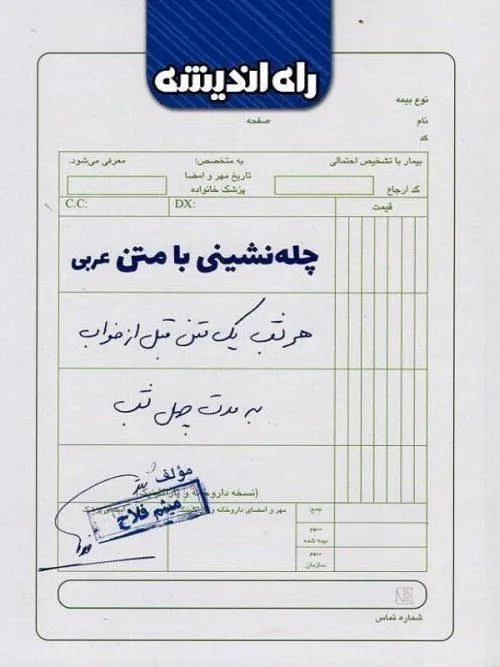 راه اندیشه
نوع بیمه
نام
صفحه
کد
بیمار با تشخیص احتمالی
به متخصص:
معرفی می‌شود.
کد ارجاع
تاریخ مهر و امضا
پزشک خانواده
قیمت
DX:
C.C:
چله‌نشینی با متن عربی
هر شب یک متن قبل از خواب
به مدت چهل شب
مؤلف
میثم فلاح
(نسخه داروخانه و پاراکلینیک)
مهر و امضای داروخانه و
جمع:
سهم
بیمه شده
سهم
سازمان
شماره تماس